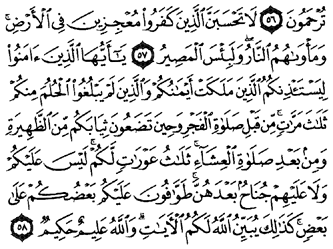 تُرْحَمُونَ ٥٦ لَا تَحْسَبَنَّ الَّذِينَ كَفَرُوا مُعْجِزِينَ فِي الْأَرْضِ ۚ
وَمَأْوَىٰهُمُ النَّارُ ۖ وَلَبِئْسَ الْمَصِيرُ ٥٧ يَٰٓأَيُّهَا الَّذِينَ ءَامَنُوا
لِيَسْتَـْٔذِنكُمُ الَّذِينَ مَلَكَتْ أَيْمَٰنُكُمْ وَالَّذِينَ لَمْ يَبْلُغُوا الْحُلُمَ مِنكُمْ
ثَلَٰثَ مَرَّٰتٍ ۚ مِّن قَبْلِ صَلَوٰةِ الْفَجْرِ وَحِينَ تَضَعُونَ ثِيَابَكُم مِّنَ الظَّهِيرَةِ
وَمِنۢ بَعْدِ صَلَوٰةِ الْعِشَآءِ ۚ ثَلَٰثُ عَوْرَٰتٍ لَّكُمْ ۚ لَيْسَ عَلَيْكُمْ
وَلَا عَلَيْهِمْ جُنَاحٌۢ بَعْدَهُنَّ ۚ طَوَّٰفُونَ عَلَيْكُم بَعْضُكُمْ عَلَىٰ
بَعْضٍ ۚ كَذَٰلِكَ يُبَيِّنُ اللَّهُ لَكُمُ الْءَايَٰتِ ۗ وَاللَّهُ عَلِيمٌ حَكِيمٌ ٥٨